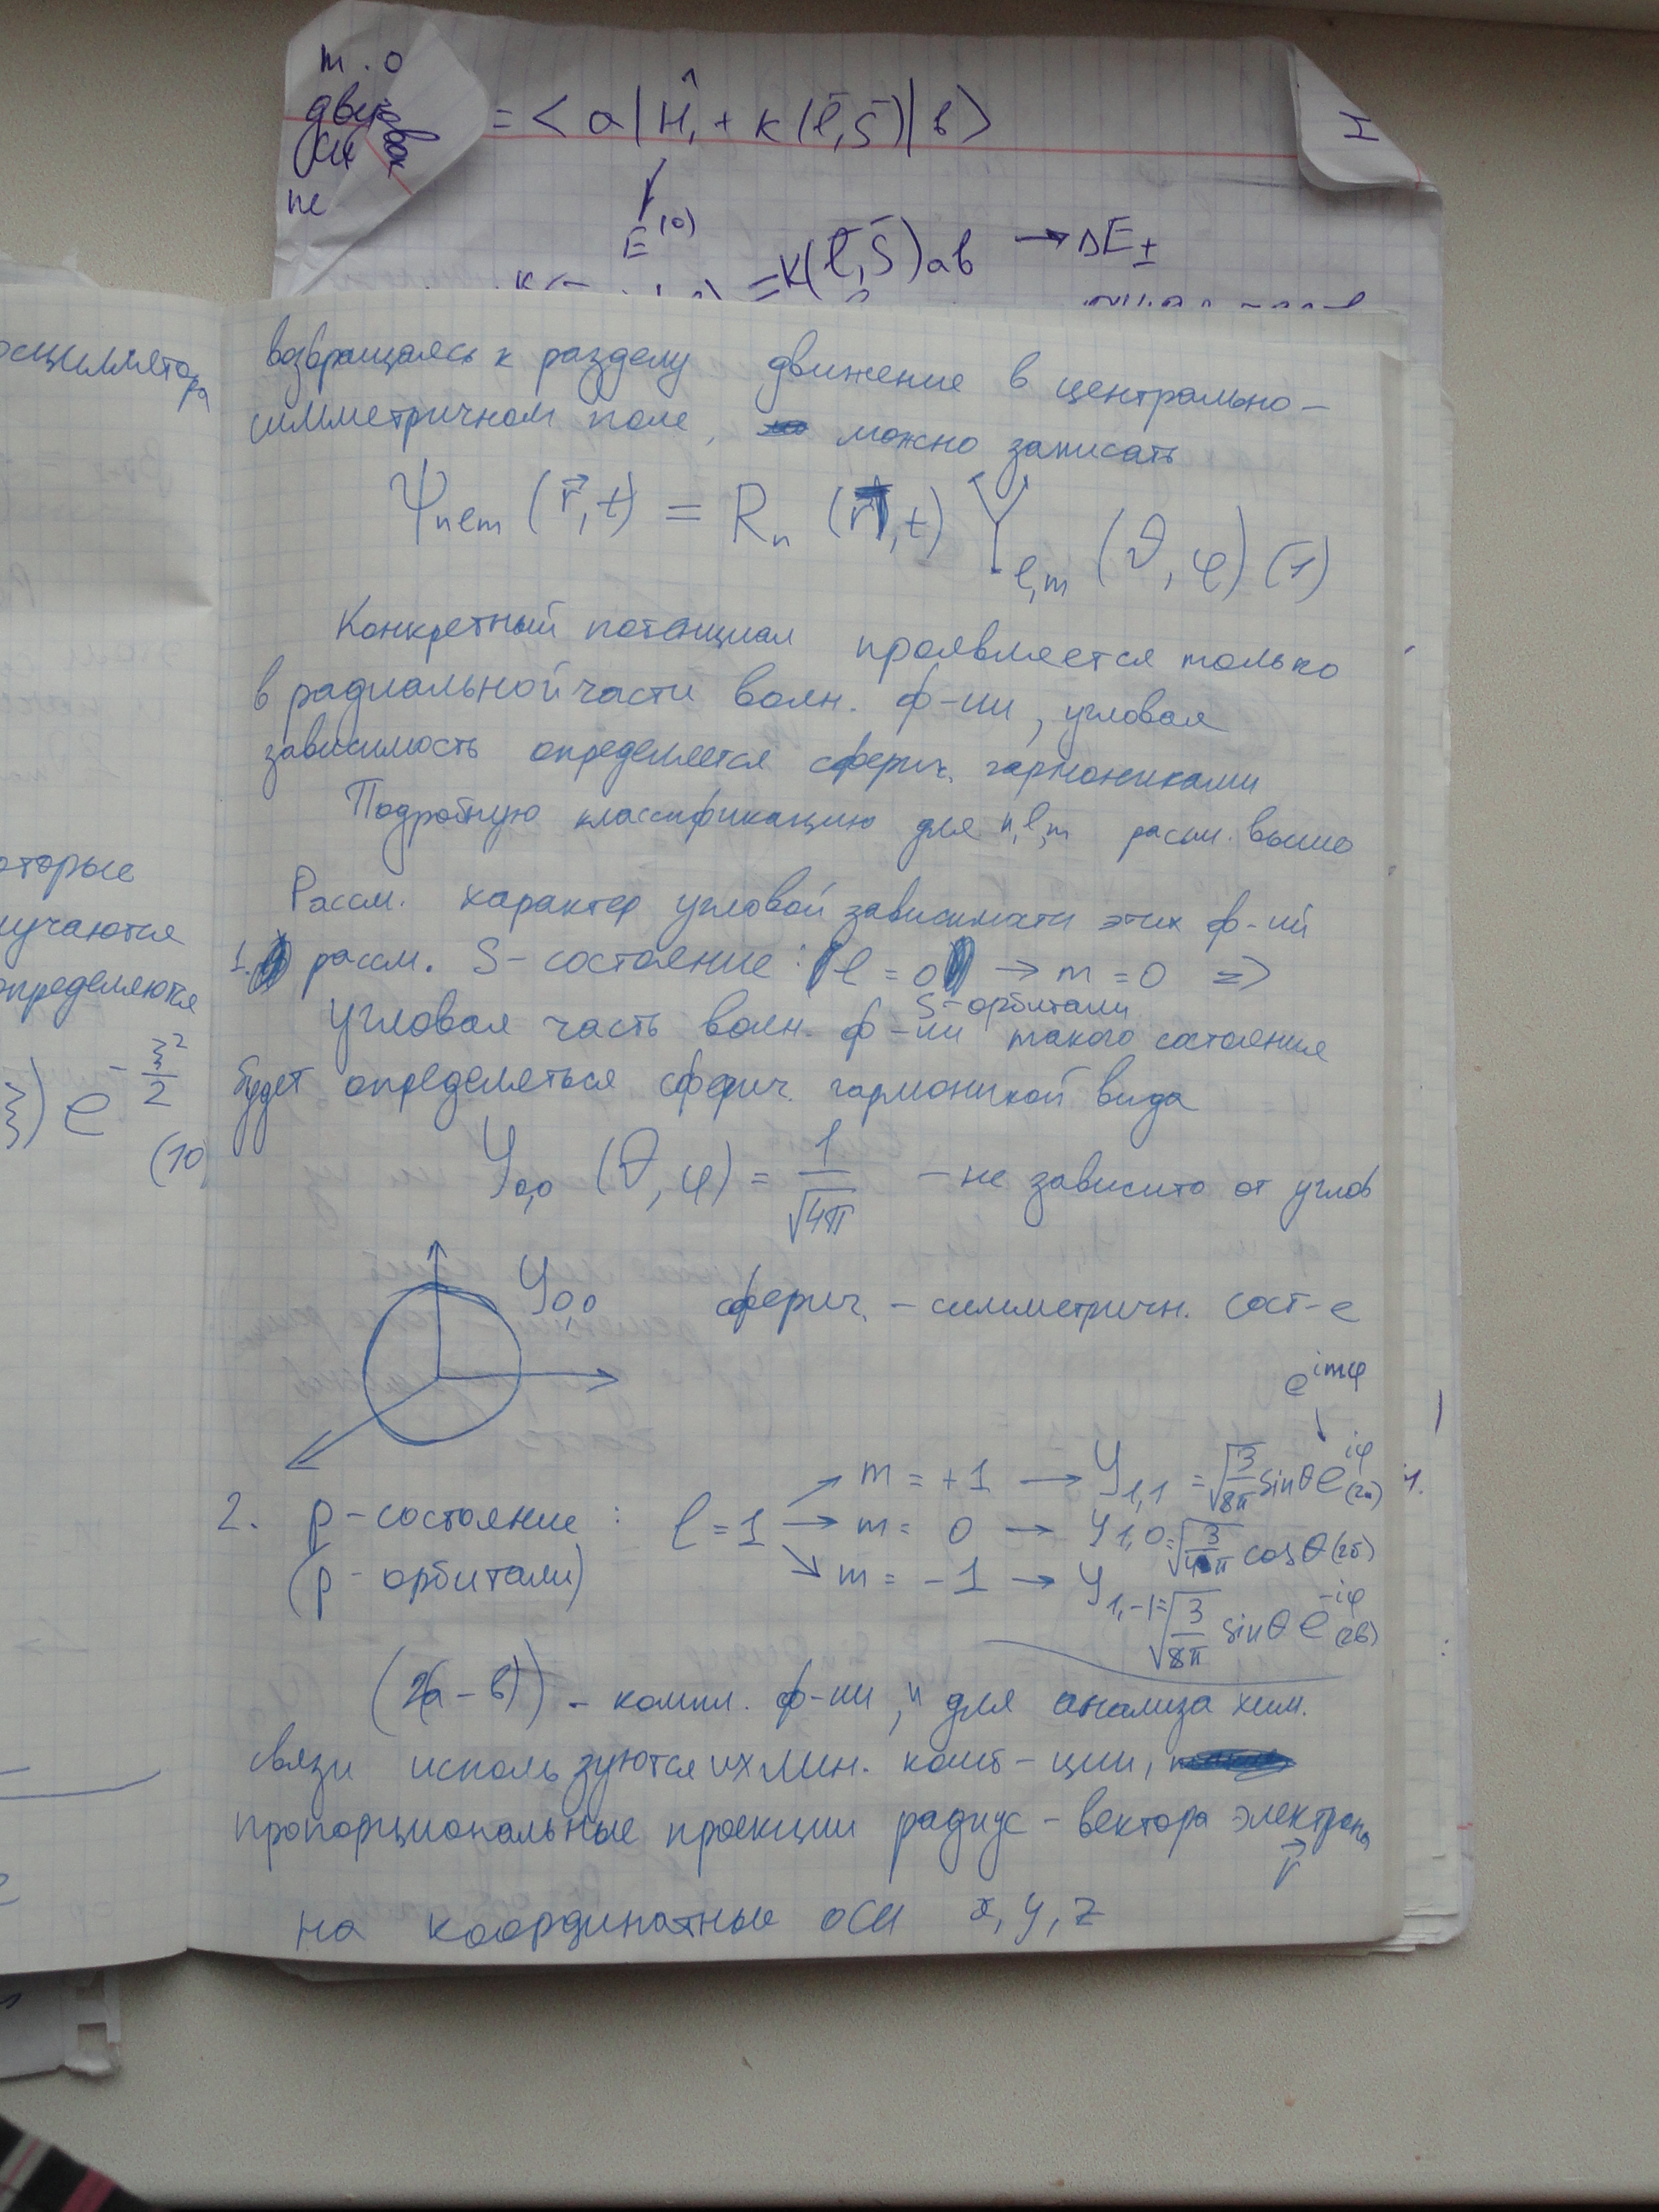 т.о
двук
ис
= < a | Ĥ₁ + к(l̄,s̄) | b >
E⁽⁰⁾
= к(l̄,s̄)ab → ΔE±
осциллятора
оторые
лучаются
определяются
ξ) e^(-ξ²/2)
(10)
возвращаясь к разделу движение в центрально-
симметричном поле, можно записать
Ψnlm (r⃗,t) = Rn (r,t) Yl,m (ϑ,φ) (1)
Конкретный потенциал проявляется только
в радиальной части волн. ф-ии, угловая
зависимость определяется сферич. гармониками
Подробную классификацию для n,l,m рассм. выше
Рассм. характер угловой зависимости этих ф-ий
1. рассм. S-состояние: l = 0 → m = 0 =>
S-орбитали
Угловая часть волн. ф-ии такого состояния
будет определяться сферич. гармоникой вида
Y0,0 (ϑ,φ) = 1/√4π - не зависит от углов
Y0,0 сферич. - симметричн. сост-е
e^(imφ)
2. p-состояние : l = 1
(p-орбитали)
m = +1 → Y1,1 = √(3/8π) sinθ e^(iφ) (2а)
m = 0 → Y1,0 = √(3/4π) cosθ (2б)
m = -1 → Y1,-1 = √(3/8π) sinθ e^(-iφ) (2в)
(2(а-в)) - компл. ф-ии, и для анализа хим.
связи используются их лин. комб-ции,
пропорциональные проекции радиус-вектора электрона
r⃗
на координатные оси x, y, z